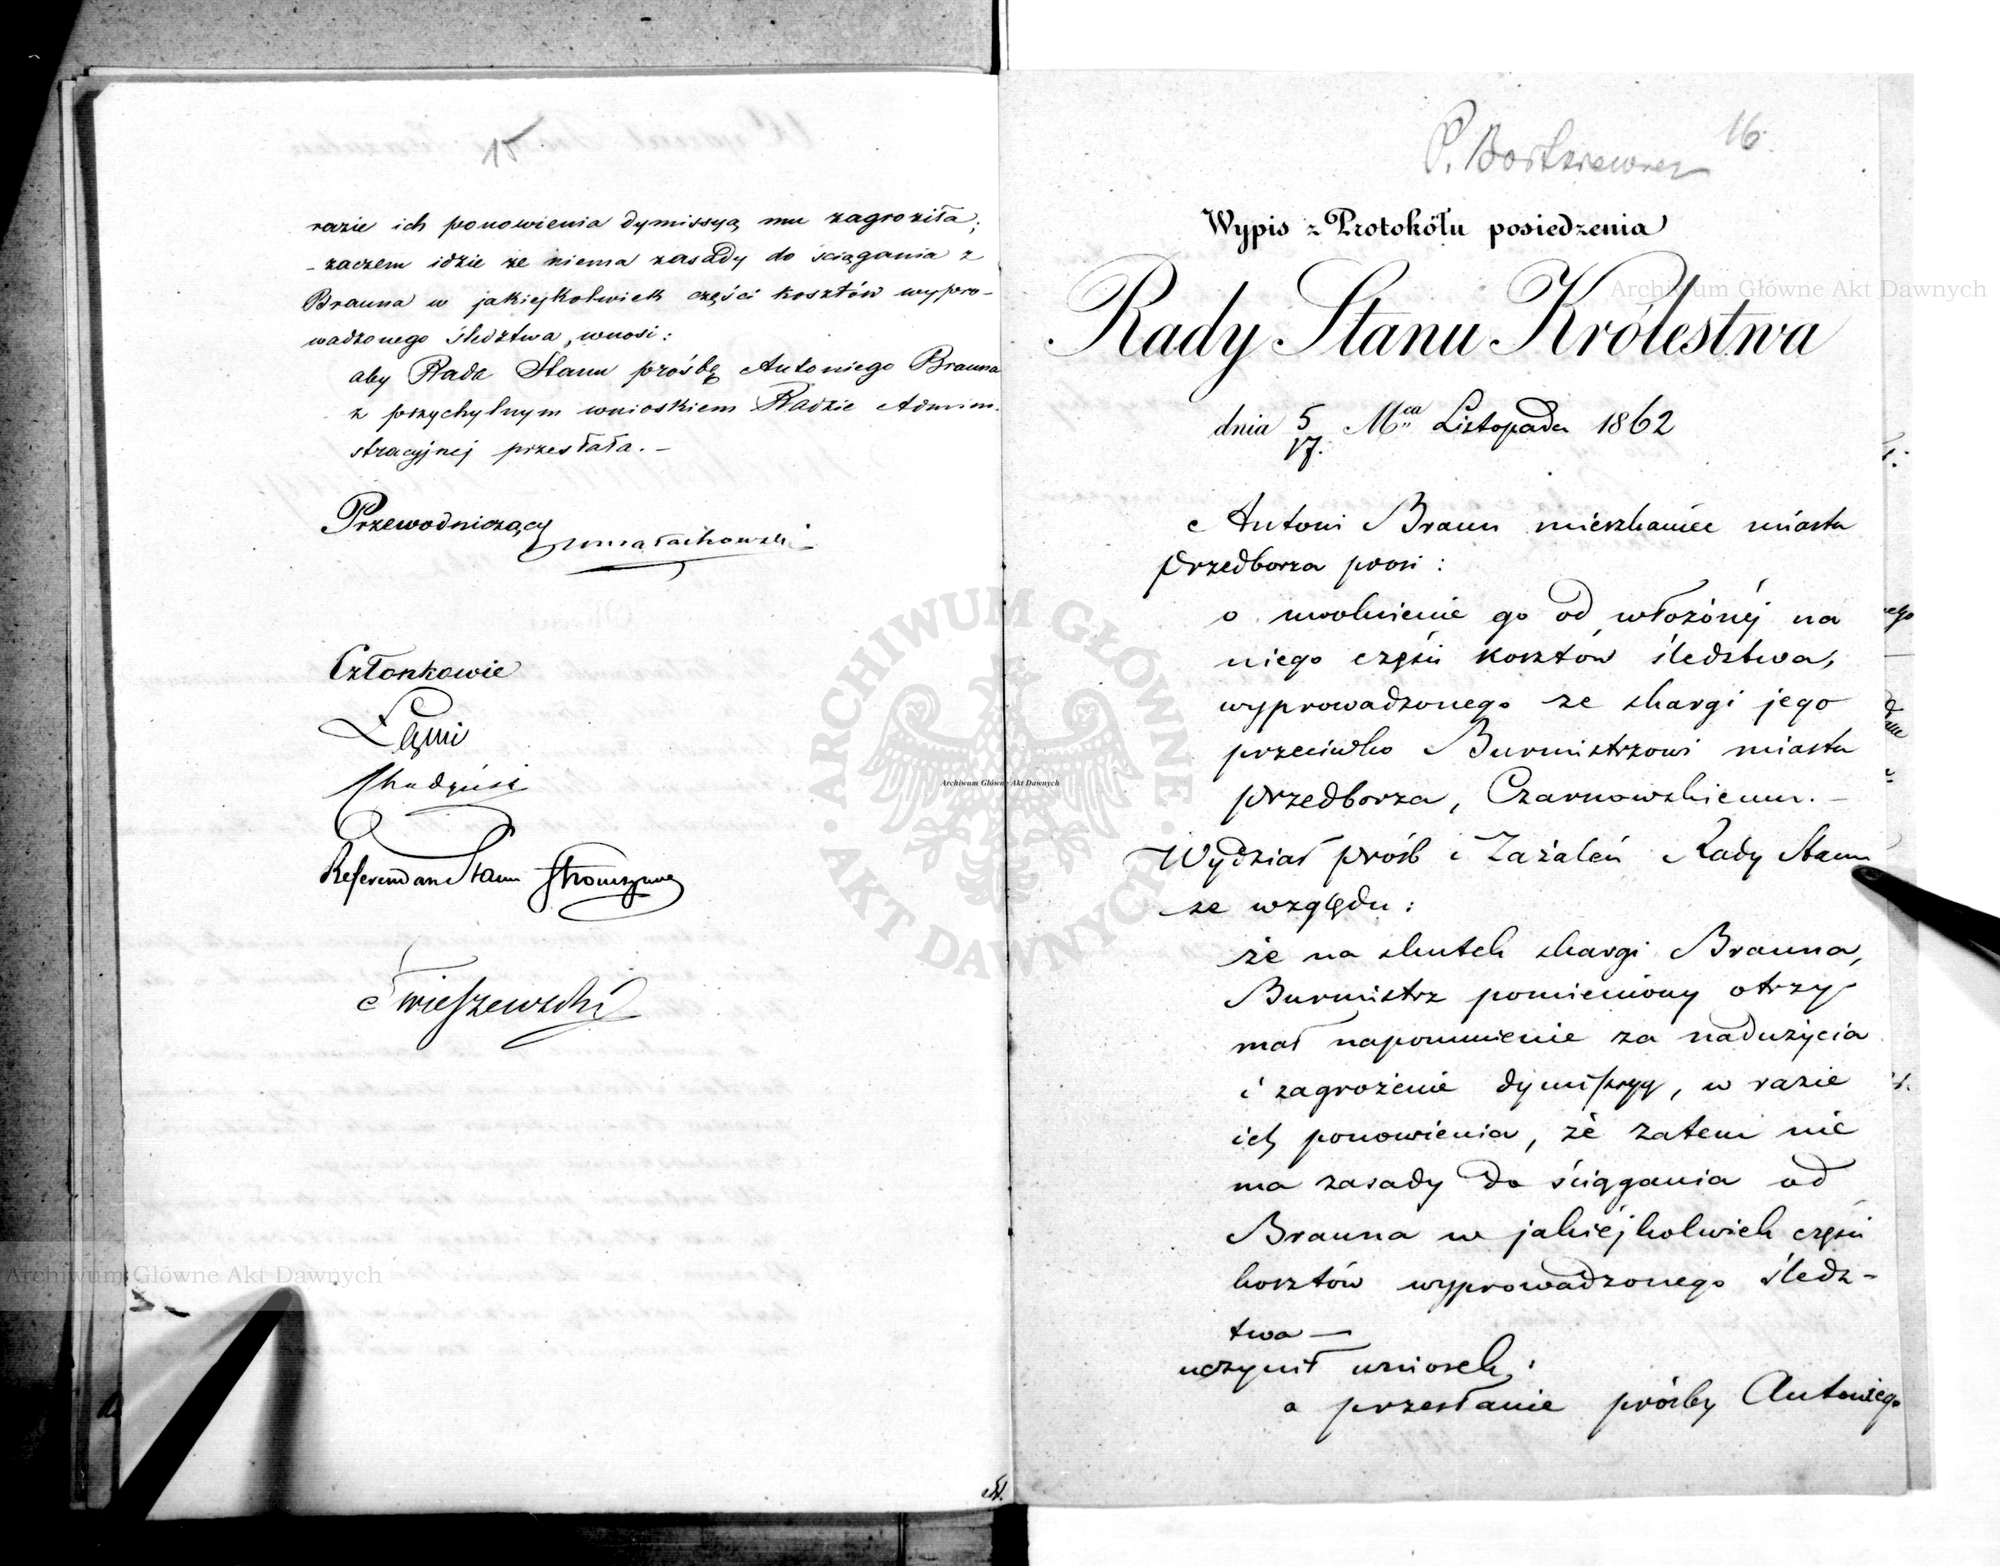 15
razie ich ponowienia dymissyą mu zagroziła;
zaczem idzie że niema zasady do ściągania z
Brauna w jakiejkolwiek części kosztów wypro-
wadzonego śledztwa, wnosi:
aby Rada Stanu prośbę Antoniego Brauna
z przychylnym wnioskiem Radzie Admini-
stracyjnej przesłała. –
Przewodniczący
Członkowie
Łęski
Referendarz Stanu Stronczyński
16.
Wypis z Protokółu posiedzenia
Rady Stanu Królestwa
dnia 5/17. Mca Listopada 1862
Antoni Braun mieszkaniec miasta
Przedborza prosi:
o uwolnienie go od włożonéj na
niego części kosztów śledztwa,
wyprowadzonego ze skargi jego
przeciwko Burmistrzowi miasta
Przedborza, Czarnowskiemu. –
Wydział Próśb i Zażaleń Rady Stanu
ze względu:
że na skutek skargi Brauna,
Burmistrz pomieniony otrzy-
mał napomnienie za nadużycia
i zagrożenie dymissyą, w razie
ich ponowienia, że zatem nie
ma zasady do ściągania od
Brauna w jakiejkolwiek części
kosztów wyprowadzonego śledz-
twa —
uczynił wniosek:
o przesłanie prośby Antoniego
Archiwum Główne Akt Dawnych
Archiwum Główne Akt Dawnych
Archiwum Główne Akt Dawnych
ARCHIWUM GŁÓWNE · AKT DAWNYCH ·